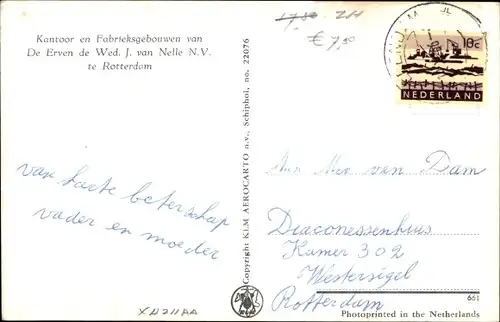 Kantoor en Fabrieksgebouwen van
De Erven de Wed. J. van Nelle N.V.
te Rotterdam
€ 7,50
10c
NEDERLAND
Copyright KLM AEROCARTO n.v., Schiphol, no. 22076
van harte beterschap
vader en moeder
Aan Mej van Dam
Diaconessenhuis
Kamer 302
Westersigel
Rotterdam
661
Photoprinted in the Netherlands